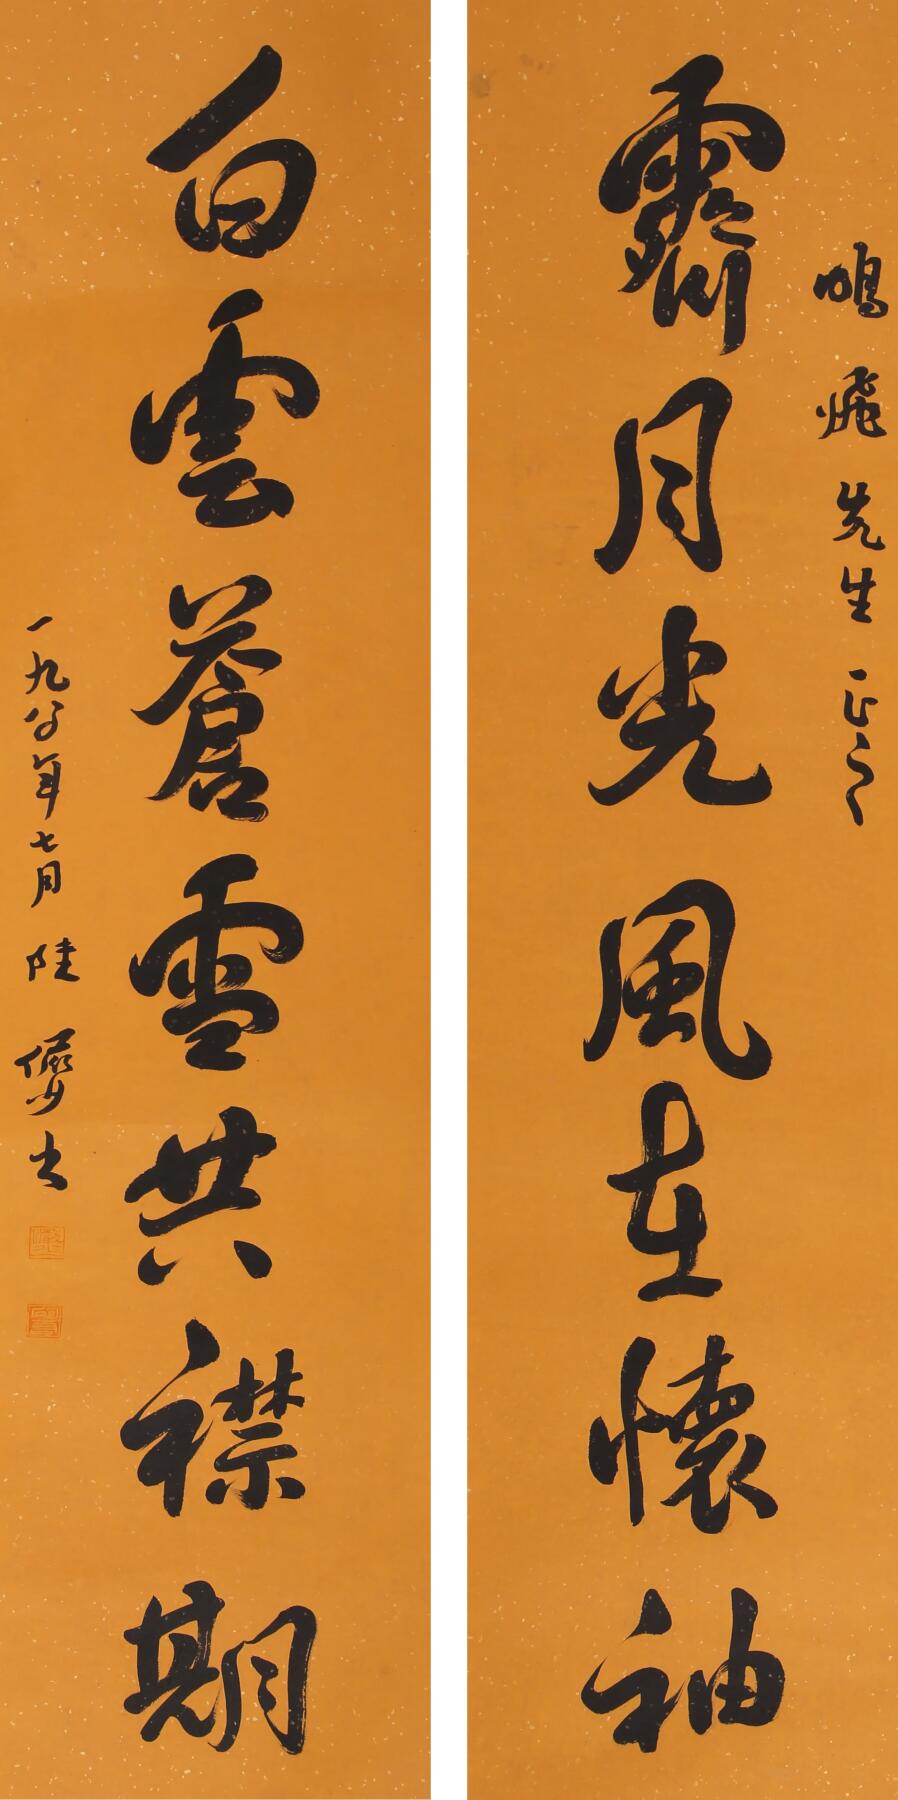 鳴飛先生正之
霽月光風在懷袖
白雲蒼雪共襟期
一九八年七月陸儼少書